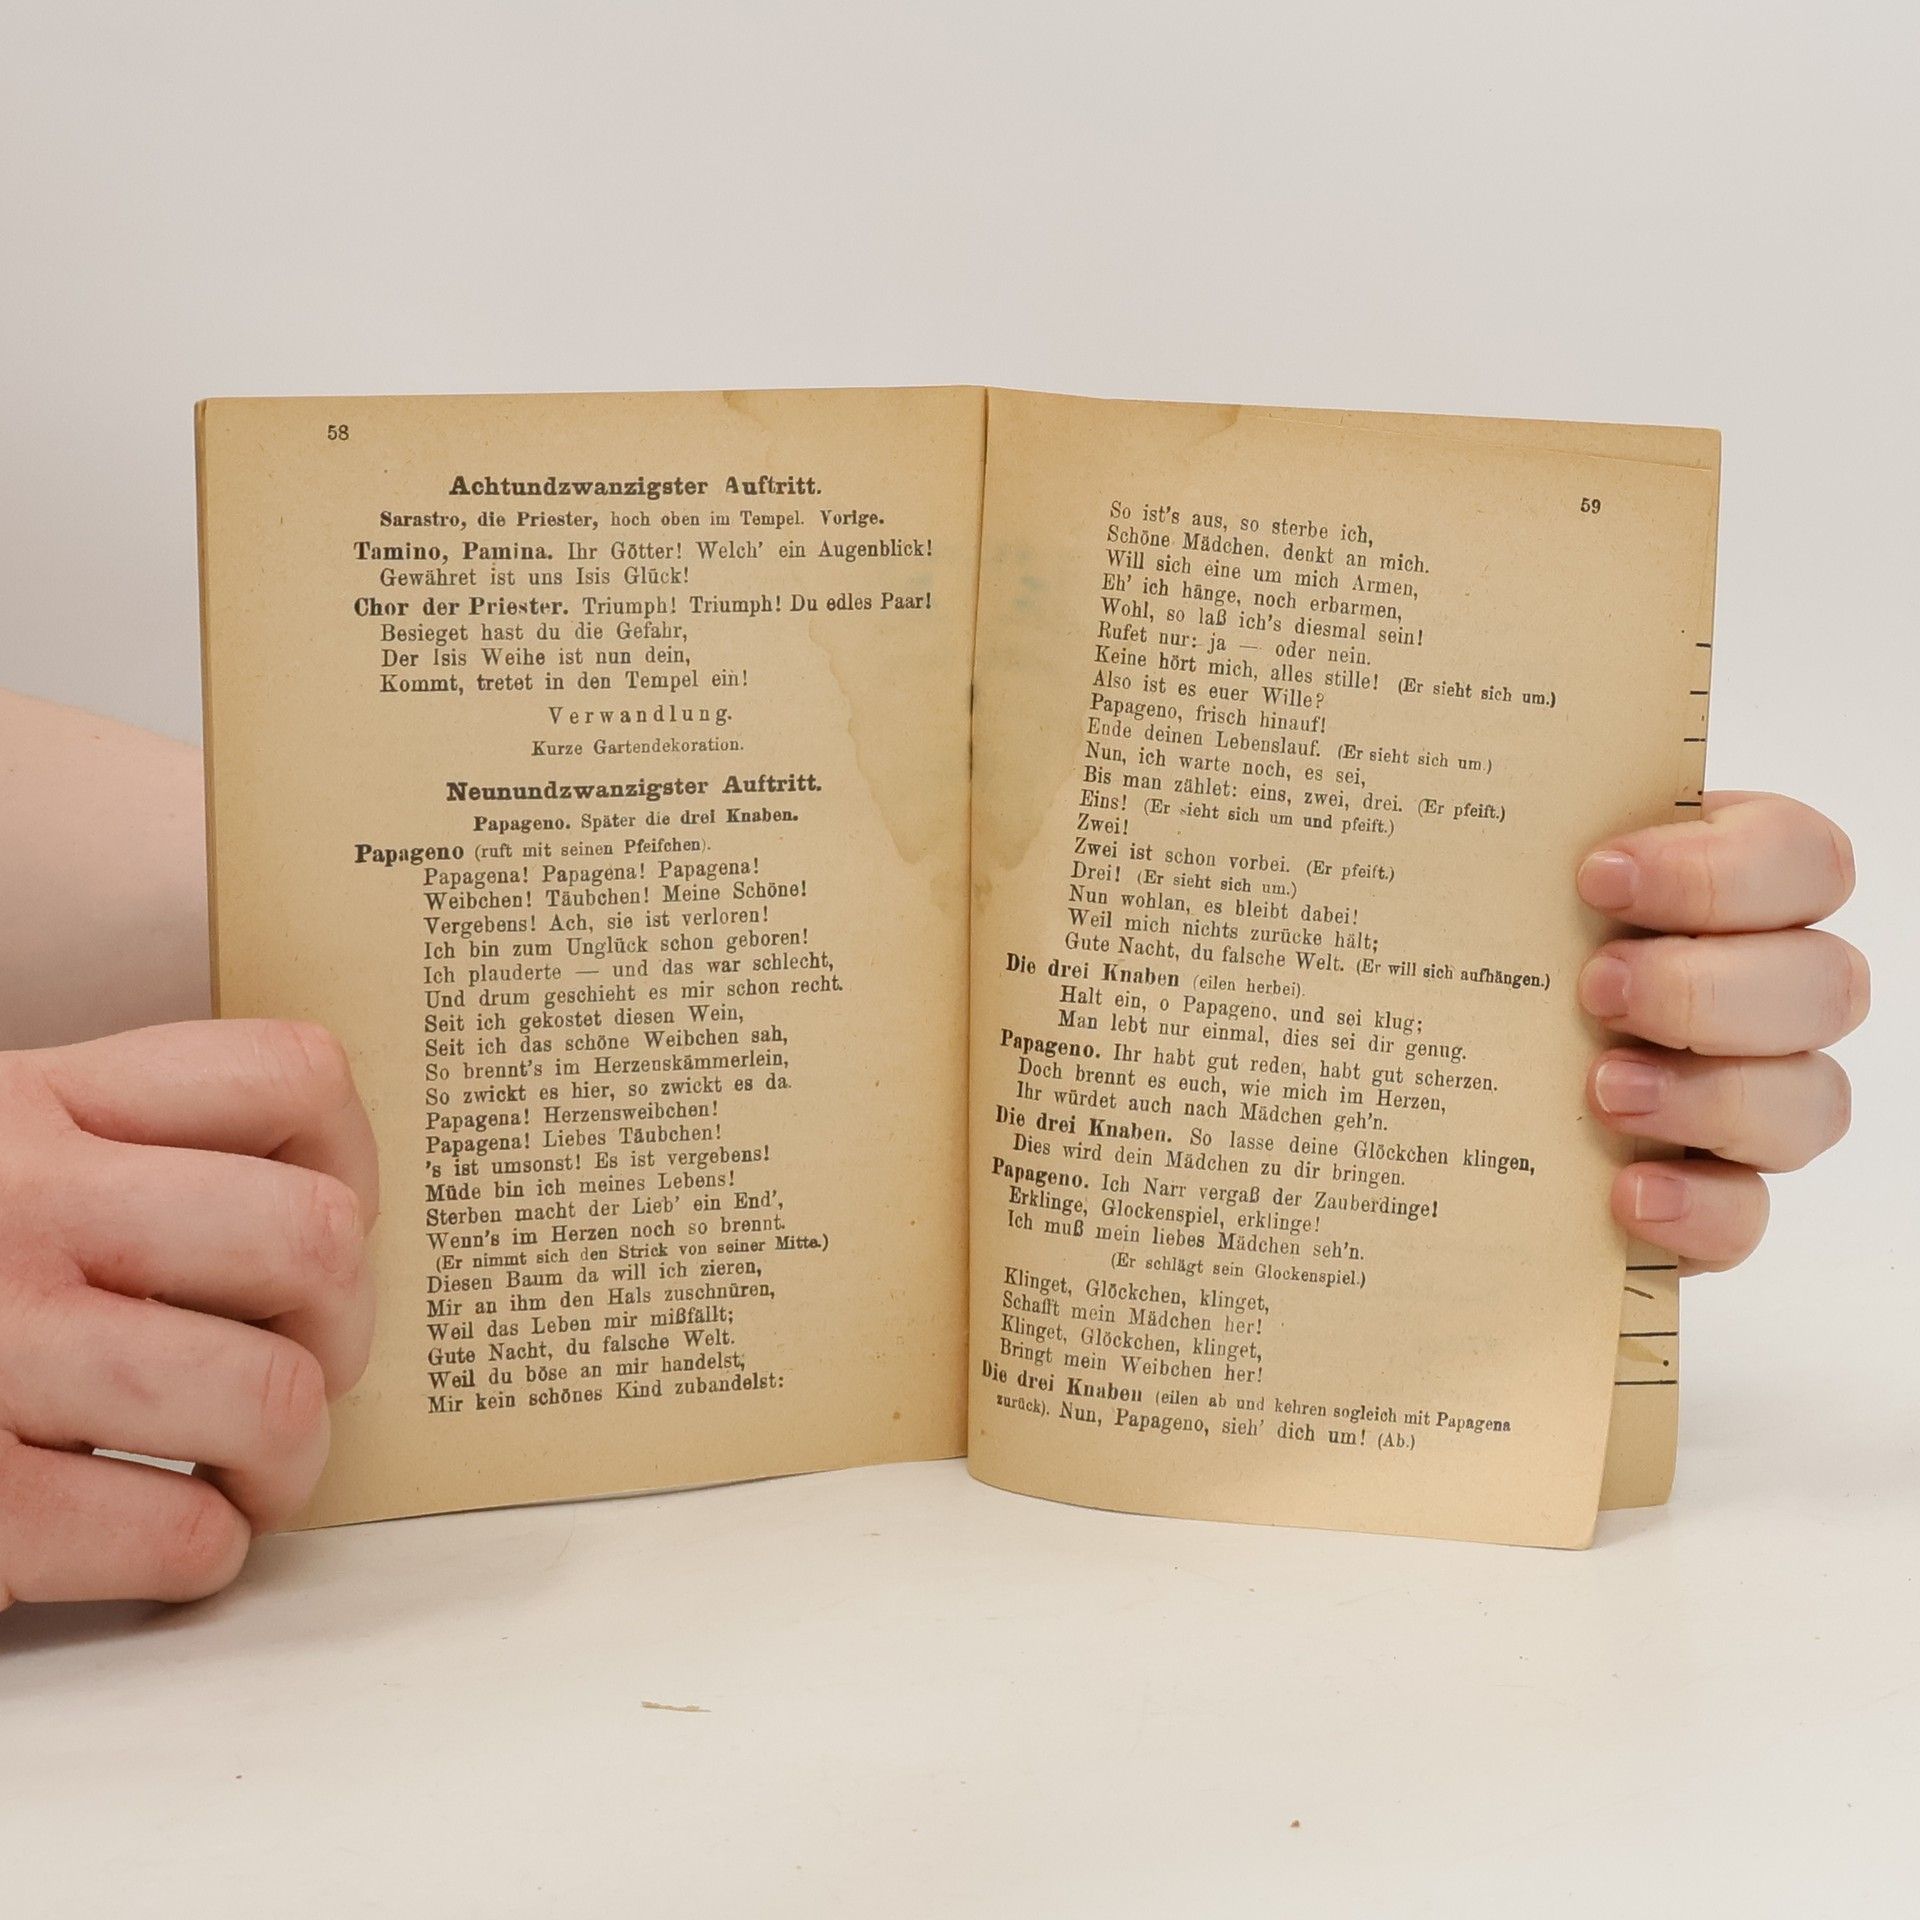 58
Achtundzwanzigster Auftritt.
Sarastro, die Priester, hoch oben im Tempel. Vorige.
Tamino, Pamina. Ihr Götter! Welch' ein Augenblick!
Gewähret ist uns Isis Glück!
Chor der Priester. Triumph! Triumph! Du edles Paar!
Besieget hast du die Gefahr,
Der Isis Weihe ist nun dein,
Kommt, tretet in den Tempel ein!
Verwandlung.
Kurze Gartendekoration.
Neunundzwanzigster Auftritt.
Papageno. Später die drei Knaben.
Papageno (ruft mit seinen Pfeifchen).
Papagena! Papagena! Papagena!
Weibchen! Täubchen! Meine Schöne!
Vergebens! Ach, sie ist verloren!
Ich bin zum Unglück schon geboren!
Ich plauderte — und das war schlecht,
Und drum geschieht es mir schon recht.
Seit ich gekostet diesen Wein,
Seit ich das schöne Weibchen sah,
So brennt's im Herzenskämmerlein,
So zwickt es hier, so zwickt es da.
Papagena! Herzensweibchen!
Papagena! Liebes Täubchen!
's ist umsonst! Es ist vergebens!
Müde bin ich meines Lebens!
Sterben macht der Lieb' ein End',
Wenn's im Herzen noch so brennt.
(Er nimmt sich den Strick von seiner Mitte.)
Diesen Baum da will ich zieren,
Mir an ihm den Hals zuschnüren,
Weil das Leben mir mißfällt;
Gute Nacht, du falsche Welt.
Weil du böse an mir handelst,
Mir kein schönes Kind zubandelst:
59
So ist's aus, so sterbe ich,
Schöne Mädchen, denkt an mich.
Will sich eine um mich Armen,
Eh' ich hänge, noch erbarmen,
Wohl, so laß ich's diesmal sein!
Rufet nur: ja — oder nein.
Keine hört mich, alles stille! (Er sieht sich um.)
Also ist es euer Wille?
Papageno, frisch hinauf!
Ende deinen Lebenslauf. (Er sieht sich um.)
Nun, ich warte noch, es sei,
Bis man zählet: eins, zwei, drei. (Er pfeift.)
Eins! (Er sieht sich um und pfeift.)
Zwei!
Zwei ist schon vorbei. (Er pfeift.)
Drei! (Er sieht sich um.)
Nun wohlan, es bleibt dabei!
Weil mich nichts zurücke hält;
Gute Nacht, du falsche Welt. (Er will sich aufhängen.)
Die drei Knaben (eilen herbei).
Halt ein, o Papageno, und sei klug;
Man lebt nur einmal, dies sei dir genug.
Papageno. Ihr habt gut reden, habt gut scherzen.
Doch brennt es euch, wie mich im Herzen,
Ihr würdet auch nach Mädchen geh'n.
Die drei Knaben. So lasse deine Glöckchen klingen,
Dies wird dein Mädchen zu dir bringen.
Papageno. Ich Narr vergaß der Zauberdinge!
Erklinge, Glockenspiel, erklinge!
Ich muß mein liebes Mädchen seh'n.
(Er schlägt sein Glockenspiel.)
Klinget, Glöckchen, klinget,
Schafft mein Mädchen her!
Klinget, Glöckchen, klinget,
Bringt mein Weibchen her!
Die drei Knaben (eilen ab und kehren sogleich mit Papagena
zurück). Nun, Papageno, sieh' dich um! (Ab.)